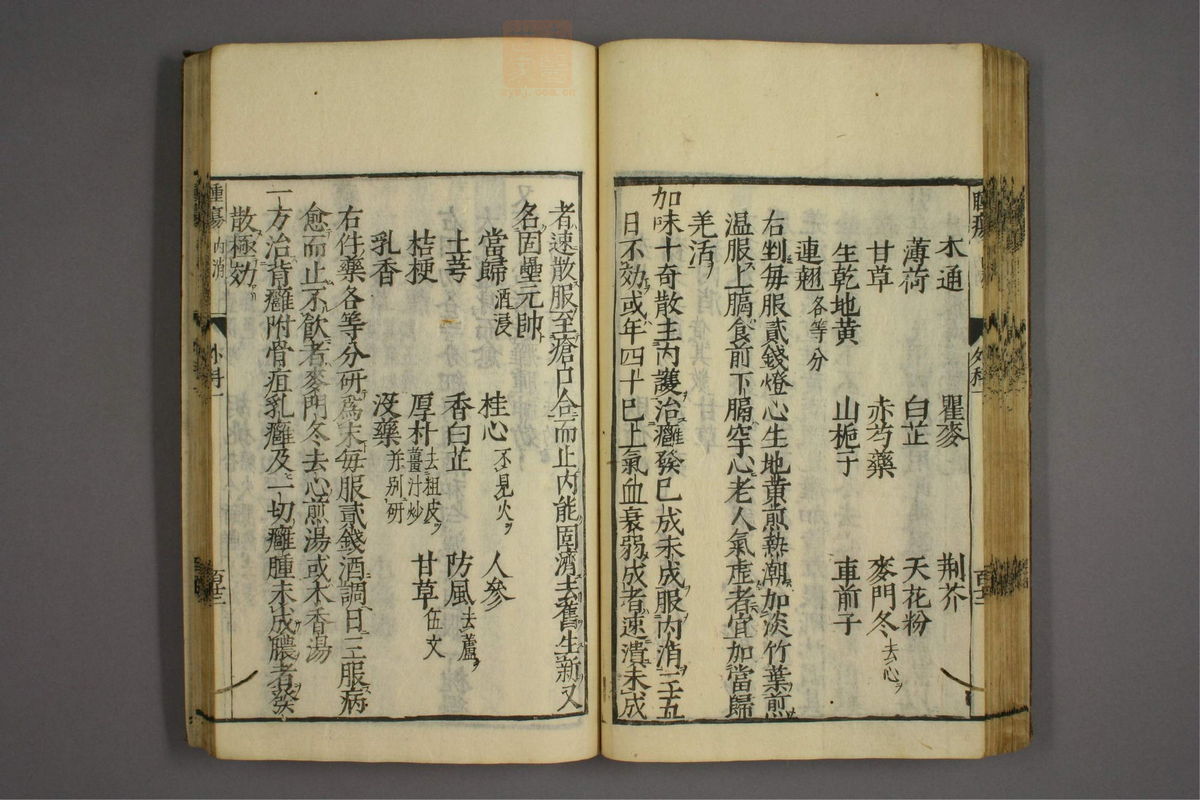 木通 瞿麥 荆芥
薄荷 白芷 天花粉
甘草 赤芍藥 麥門冬去心ヲ
生乾地黄 山梔子 車前子
連翹各等分
右剉毎服貳錢燈心生地黄煎熱潮加淡竹葉煎
温服上膈食前下膈空心老人氣虚者宜加當歸
羌活
加味十奇散主内護治癰發已成未成服内消三五
日不効或年四十已上氣血衰弱成者速潰未成
者速散服至瘡口合而止内能固濟去舊生新又
名固壘元帥
當歸酒浸 桂心不見火 人參
土芎 香白芷 防風去蘆
桔梗 厚朴去粗皮薑汁炒 甘草伍文
乳香 沒藥并别研
右件藥各等分研爲末毎服貳錢酒調日三服病
愈而止不飲者麥門冬去心煎湯或木香湯
一方治背癰附骨疽乳癰及一切癰腫未成膿者發
散極効
腫瘍 内消 外科一